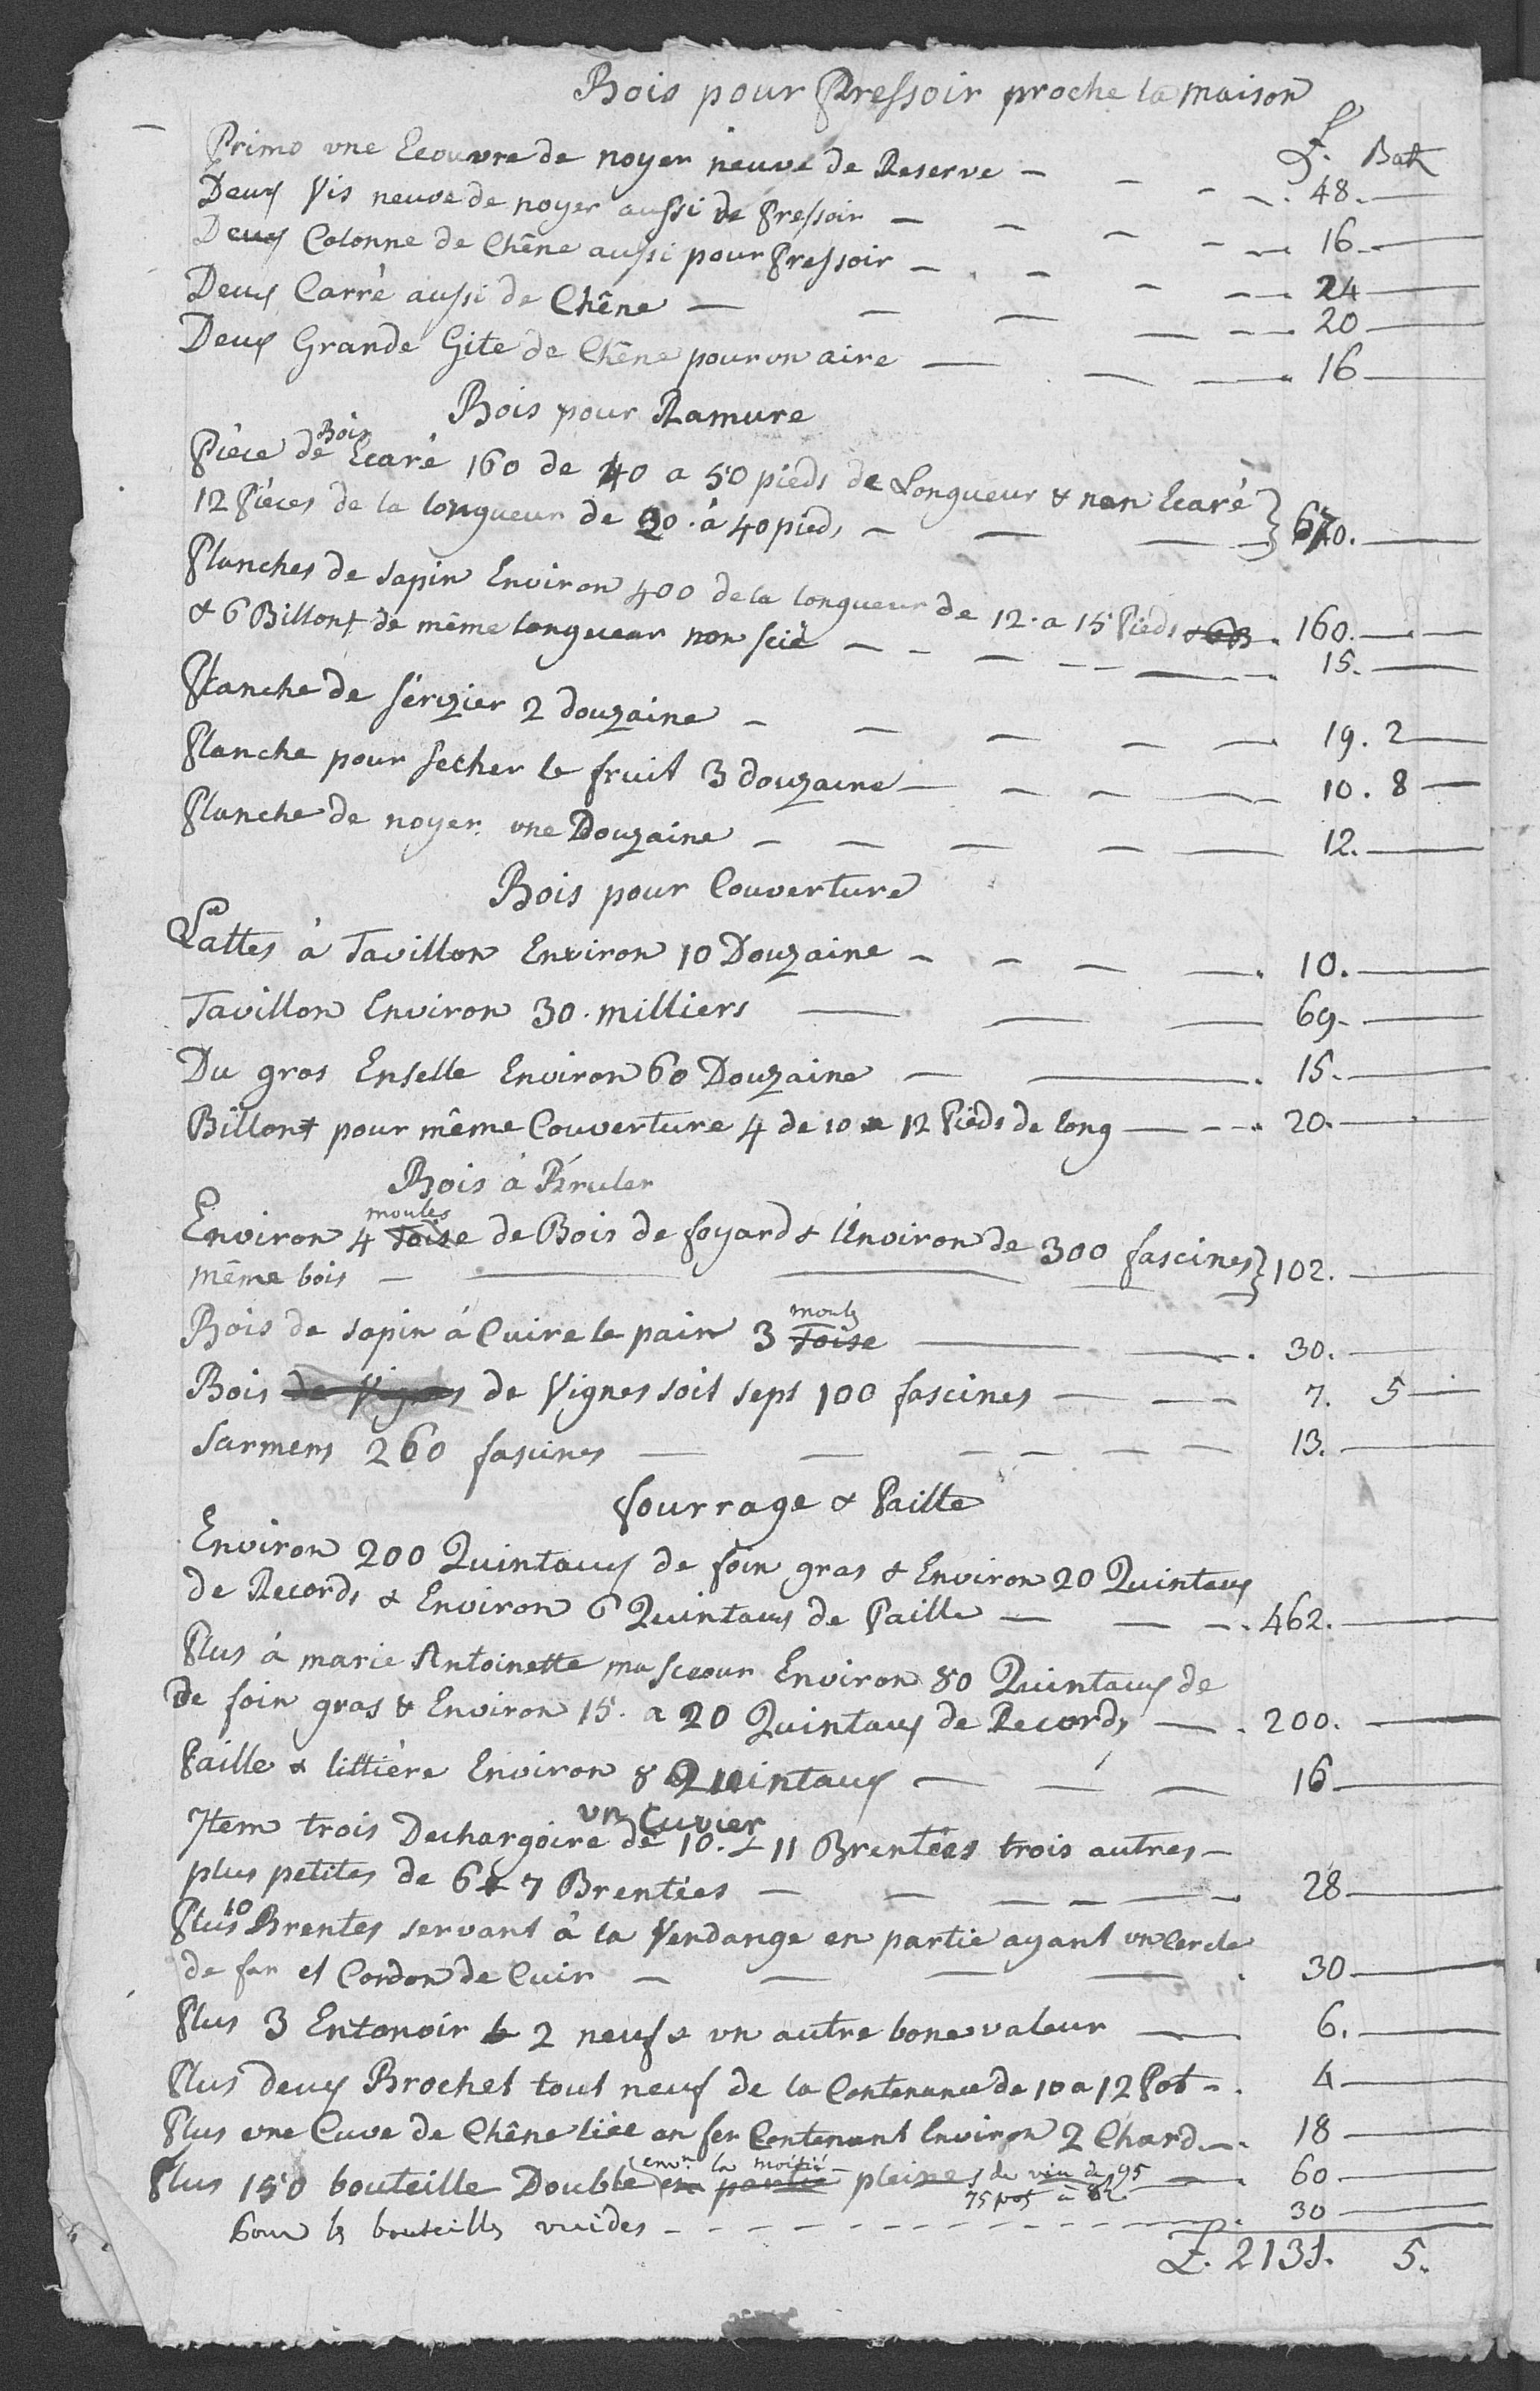 Bois pour Pressoir proche la maison
£. Batz
Primo une Ecouvre de noyer neuve de Reserve — 48.
Deux Vis neuve de noyer aussi de Pressoir — 16
Deux Colonne de Chêne aussi pour Pressoir — 24
Deux Carré aussi de Chêne — 20
Deux Grande Gite de Chêne pour un aire — 16
Bois pour Ramure
Pièce de Bois Ecaré 160 de 40 a 50 pieds de Longueur & non Ecaré
12 Pièces de la longueur de 20. à 40 pieds — 670.
Planches de sapin Environ 400 de la longueur de 12. a 15 Pieds & 6 B 160.
& 6 Billont de même longueur non scié — 15.
Planche de sérizier 2 douzaine — 19. 2
Planche pour secher le fruit 3 douzaine — 10. 8
Planche de noyer une Douzaine — 12.
Bois pour Couverture
Lattes à Tavillon Environ 10 Douzaine — 10.
Tavillon Environ 30. milliers — 69.
Du gros Enselle Environ 60 Douzaine — 15.
Billont pour même Couverture 4 de 10 a 12 Pieds de long — 20.
Bois à Bruler
Environ 4 Toise moules de Bois de foyard & Environ de 300 fascines
même bois — 102.
Bois de sapin à Cuire le pain 3 Toise moules — 30.
Bois de Vignes de Vignes soit seps 100 fascines — 7. 5
Sarmens 260 fascines — 13.
fourrage & Paille
Environ 200 Quintaux de foin gras & Environ 20 Quintaux
de Records & Environ 6 Quintaux de Paille — 462.
Plus à marie Antoinette ma Sceour Environ 80 Quintaux de
de foin gras & Environ 15. a 20 Quintaux de Records — 200.
Paille & littière Environ 8 Quintaux — 16
un Cuvier
Item trois Dechargoire de 10. & 11 Brentées trois autres —
plus petites de 6 & 7 Brentées — 28
Plus 10 Brentes servant à la Vendange en partie ayant un Cercle
de fer et Cordon de Cuir — 30
Plus 3 Entonoir 2 neufs & un autre bone valeur — 6.
Plus deux Brochet tout neuf de la Contenance de 10 a 12 Pot — 4
Plus une Cuve de Chêne liée en fer Contenant Environ 2 Chard — 18
Plus 150 bouteille Double (envn la moitié en partie pleines de vin de 95 — 60
75 pot à
Pour les bouteilles vuides — 30
£. 2131. 5.